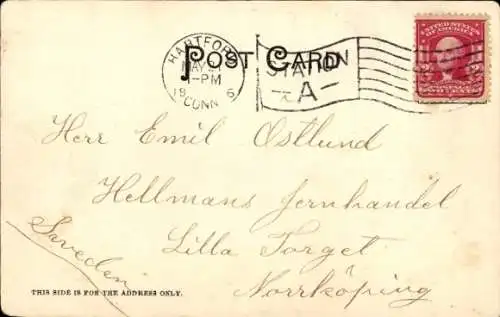 HARTFORD
POST CARD
STATION
A
CONN
UNITED STATES
OF AMERICA
Herr Emil Ostlund
Hellmans Jernhandel
Lilla Torget
Norrköping
Sweden
THIS SIDE IS FOR THE ADDRESS ONLY.